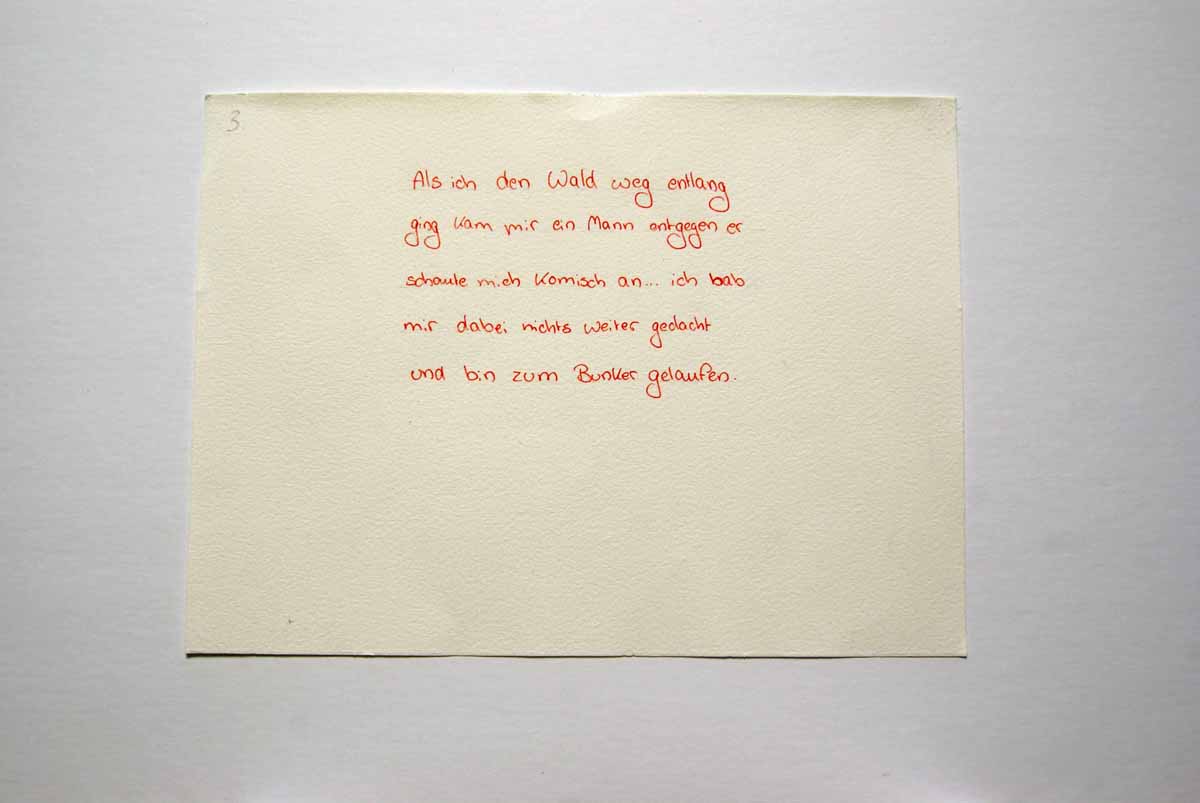 3
Als ich den Wald weg entlang
ging kam mir ein Mann entgegen er
schaute mich komisch an... ich bab
mir dabei nichts weiter gedacht
und bin zum Bunker gelaufen.